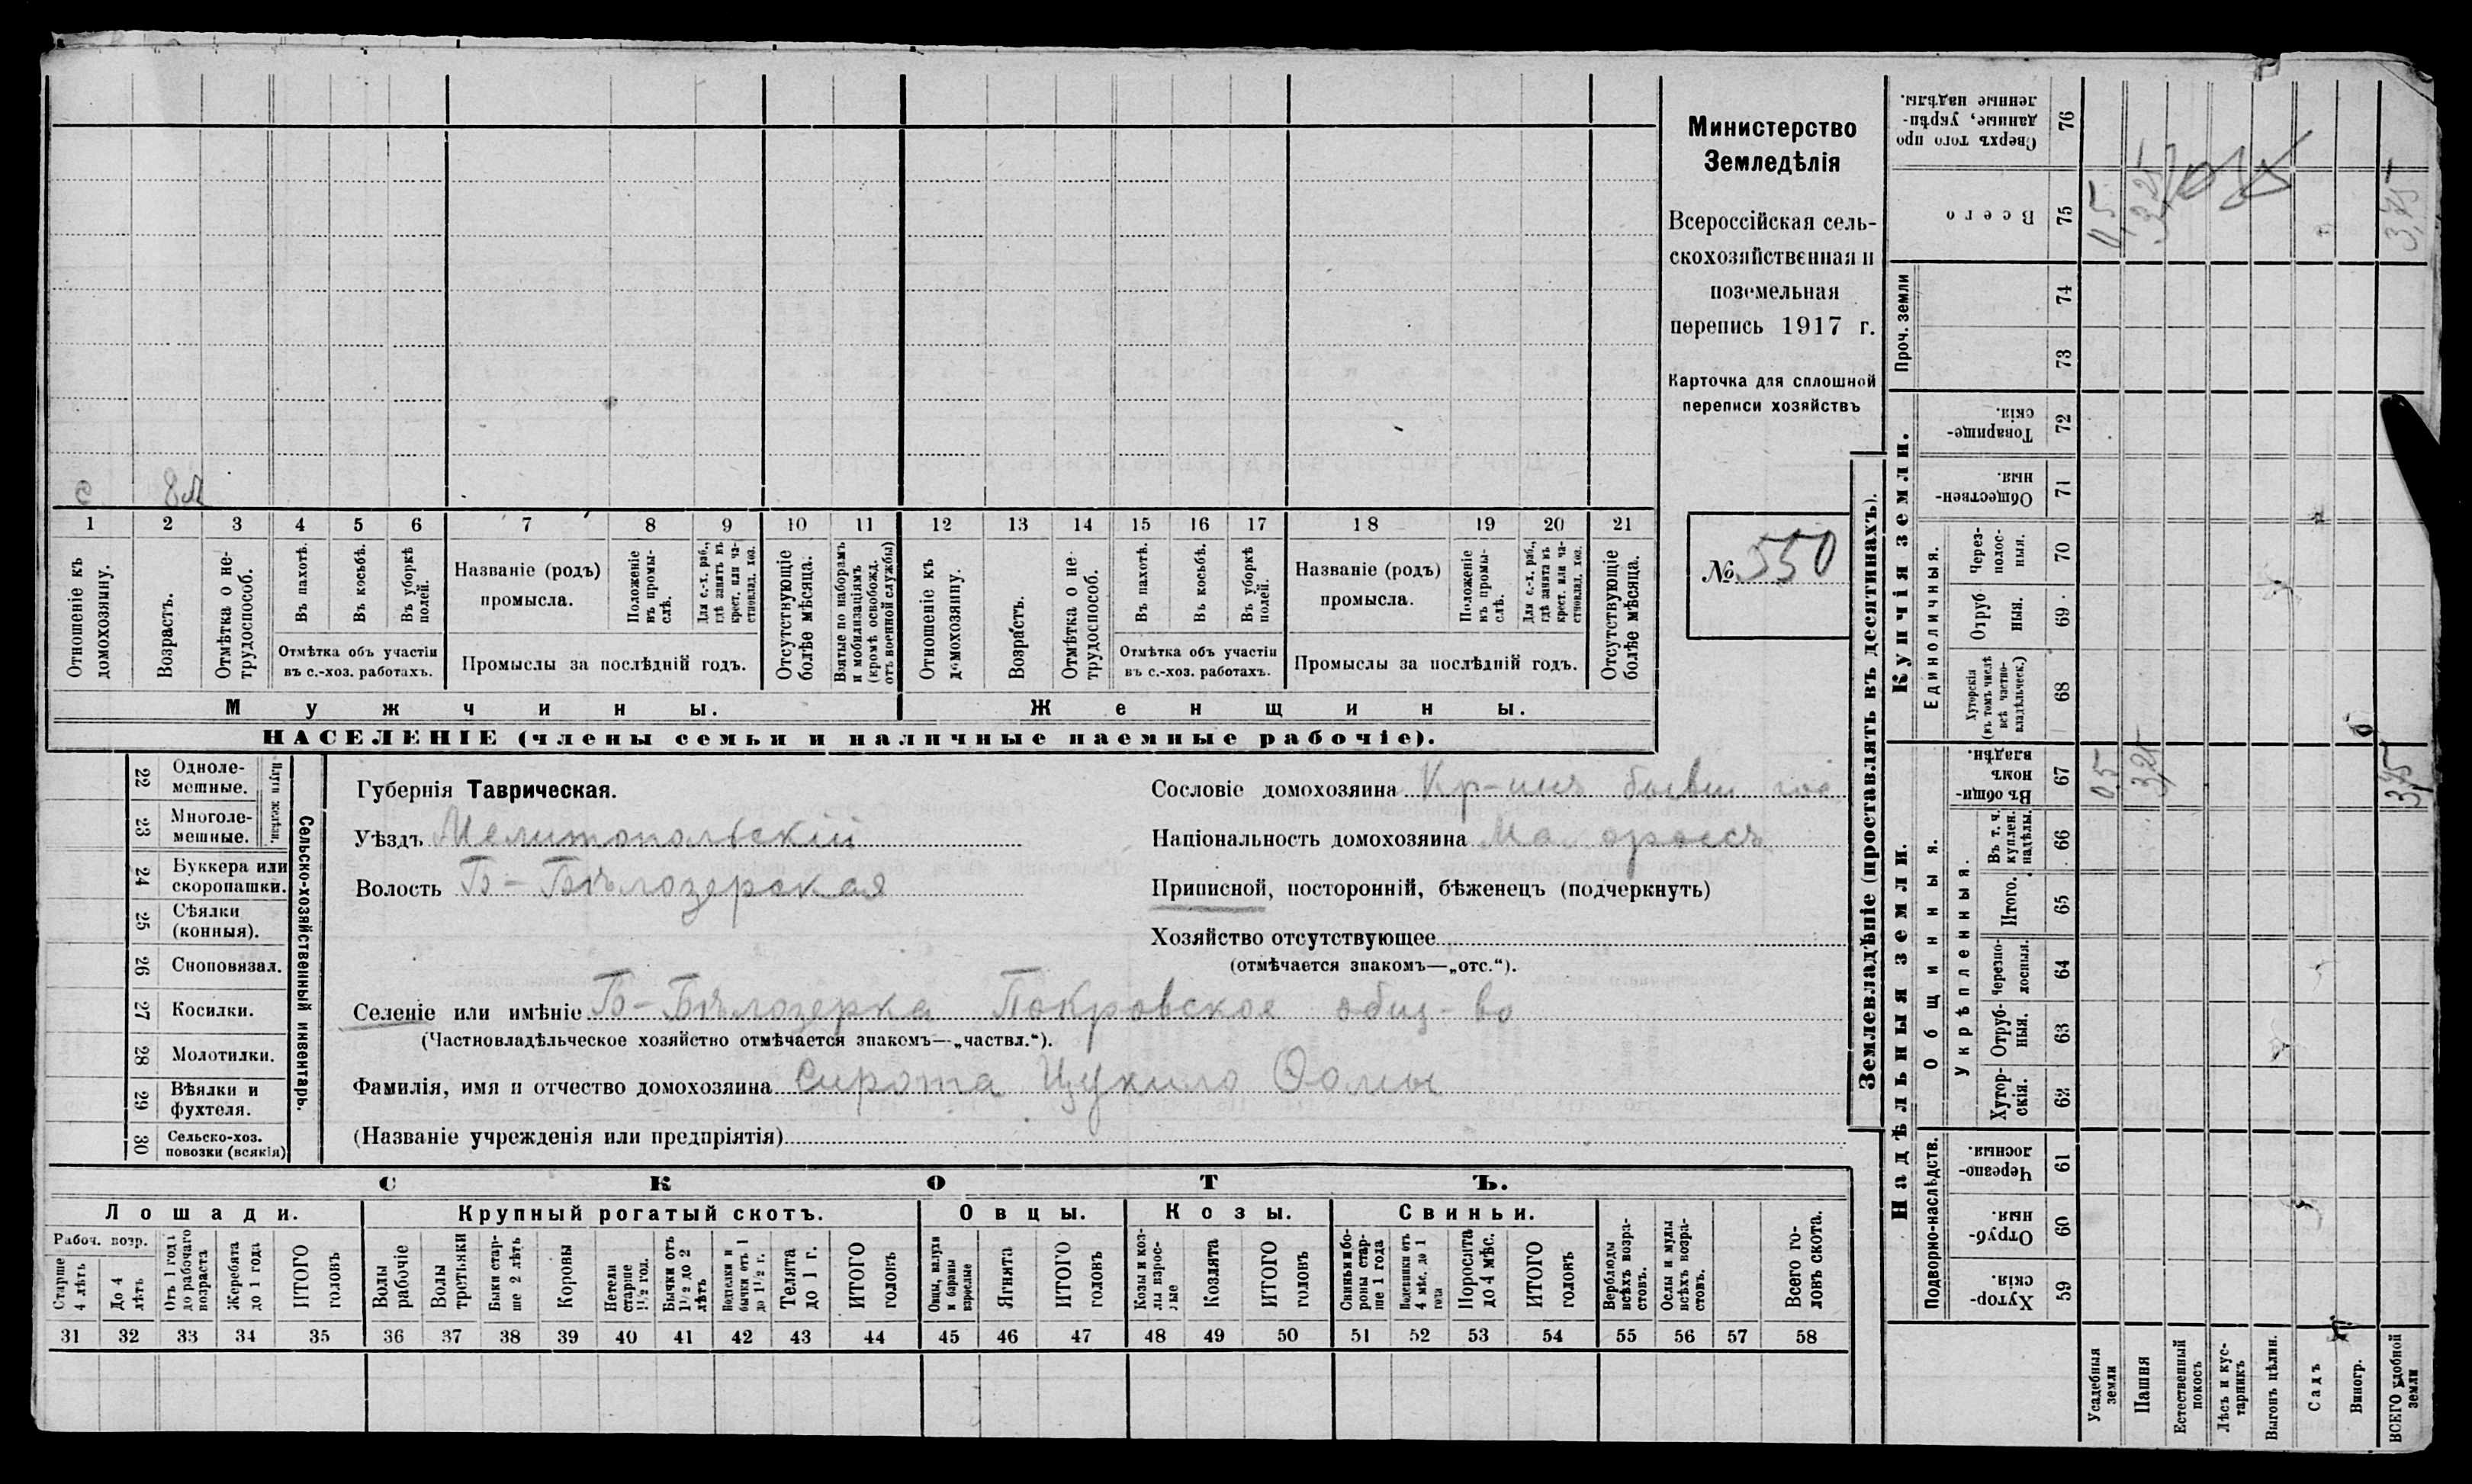 Министерство
Земледѣлія
Всероссійская сель-
скохозяйственная и
поземельная
перепись 1917 г.
Карточка для сплошной
переписи хозяйствъ
№ 550
8 м
1 2 3 4 5 6 7 8 9 10 11 12 13 14 15 16 17 18 19 20 21
Отношеніе къ домохозяину.
Возрастъ.
Отмѣтка о не-трудоспособ.
Въ пахотѣ.
Въ косьбѣ.
Въ уборкѣ полей.
Отмѣтка объ участіи
въ с.-хоз. работахъ.
Названіе (родъ)
промысла.
Положеніе въ промы-слѣ.
Для с.-х. раб., гдѣ занятъ въ крест. или ча-стновлад. хоз.
Промыслы за послѣдній годъ.
Отсутствующіе болѣе мѣсяца.
Взятые по наборамъ и мобилизаціямъ (кромѣ освобожд. отъ военной службы)
Отношеніе къ домохозяину.
Возрастъ.
Отмѣтка о не трудоспособ.
Въ пахотѣ.
Въ косьбѣ.
Въ уборкѣ полей.
Отмѣтка объ участіи
въ с.-хоз. работахъ.
Названіе (родъ)
промысла.
Положеніе въ промы-слѣ.
Для с.-х. раб., гдѣ занята въ крест. или ча-стновлад. хоз.
Промыслы за послѣдній годъ.
Отсутствующіе болѣе мѣсяца.
Мужчины.
Женщины.
НАСЕЛЕНІЕ (члены семьи и наличные наемные рабочіе).
22 Одноле-мешные.
23 Многоле-мешные.
Плуги желѣзн.
24 Буккера или скоропашки.
25 Сѣялки (конныя).
26 Сноповязал.
27 Косилки.
28 Молотилки.
29 Вѣялки и фухтеля.
30 Сельско-хоз. повозки (всякія)
Сельско-хозяйственный инвентарь.
Губернія Таврическая.
Уѣздъ Мелитопольскій
Волость Б-Бѣлозерская
Сословіе домохозяина Кр-инъ бывш гос
Національность домохозяина Малороссъ
Приписной, посторонній, бѣженецъ (подчеркнуть)
Хозяйство отсутствующее
(отмѣчается знакомъ—„отс.“).
Селеніе или имѣніе Б-Бѣлозерка Покровское общ-во
(Частновладѣльческое хозяйство отмѣчается знакомъ—„частвл.“).
Фамилія, имя и отчество домохозяина Сирота Ѳомы
(Названіе учрежденія или предпріятія)
СКОТЪ.
Лошади.
Крупный рогатый скотъ.
Овцы.
Козы.
Свиньи.
Рабоч. возр.
Старше 4 лѣтъ
До 4 лѣтъ
Отъ 1 года до рабочаго возраста
Жеребята до 1 года
ИТОГО головъ
Волы рабочіе
Волы третьяки
Быки стар-ше 2 лѣтъ
Коровы
Нетели старше 1½ год.
Бычки отъ 1½ до 2 лѣтъ
Подтелки и бычки отъ 1 до 1½ г.
Телята до 1 г.
ИТОГО головъ
Овцы, валухи и бараны взрослые
Ягнята
ИТОГО головъ
Козы и коз-лы взрос-лые
Козлята
ИТОГО головъ
Свиньи и бо-роны стар-ше 1 года
Подсвинки отъ 4 мѣс. до 1 года
Поросята до 4 мѣс.
ИТОГО головъ
Верблюды всѣхъ возра-стовъ.
Ослы и мулы всѣхъ возра-стовъ.
Всего го-ловъ скота.
31 32 33 34 35 36 37 38 39 40 41 42 43 44 45 46 47 48 49 50 51 52 53 54 55 56 57 58
Землевладѣніе (проставлять въ десятинахъ).
Купчія земли.
Надѣльныя земли.
Сверхъ того про данные, укрѣп-ленные надѣлы. 76
Всего 75 0,5 3,25 3,75
Проч. земли 74 73
Товарище-скія. 72
Обществен-ныя. 71
Единоличныя.
Через-полос-ныя. 70
Отруб ныя. 69
Хуторскія (въ томъ числѣ всѣ частно-владѣльческ.) 68
Общинныя.
Въ общи-номъ владѣн. 67 0,5 3,25 3,75
Укрѣпленныя.
Въ т. ч. куплен. надѣлы. 66
Итого. 65
Черезпо-лосныя. 64
Отруб-ныя. 63
Хутор-скія. 62
Подворно-наслѣдств.
Черезпо-лосныя. 61
Отруб-ныя. 60
Хутор-скія. 59
Усадебныя земли
Пашня
Естественный покосъ
Лѣсъ и кус-тарникъ
Выгонъ цѣлин.
Садъ
Виногр.
ВСЕГО удобной земли